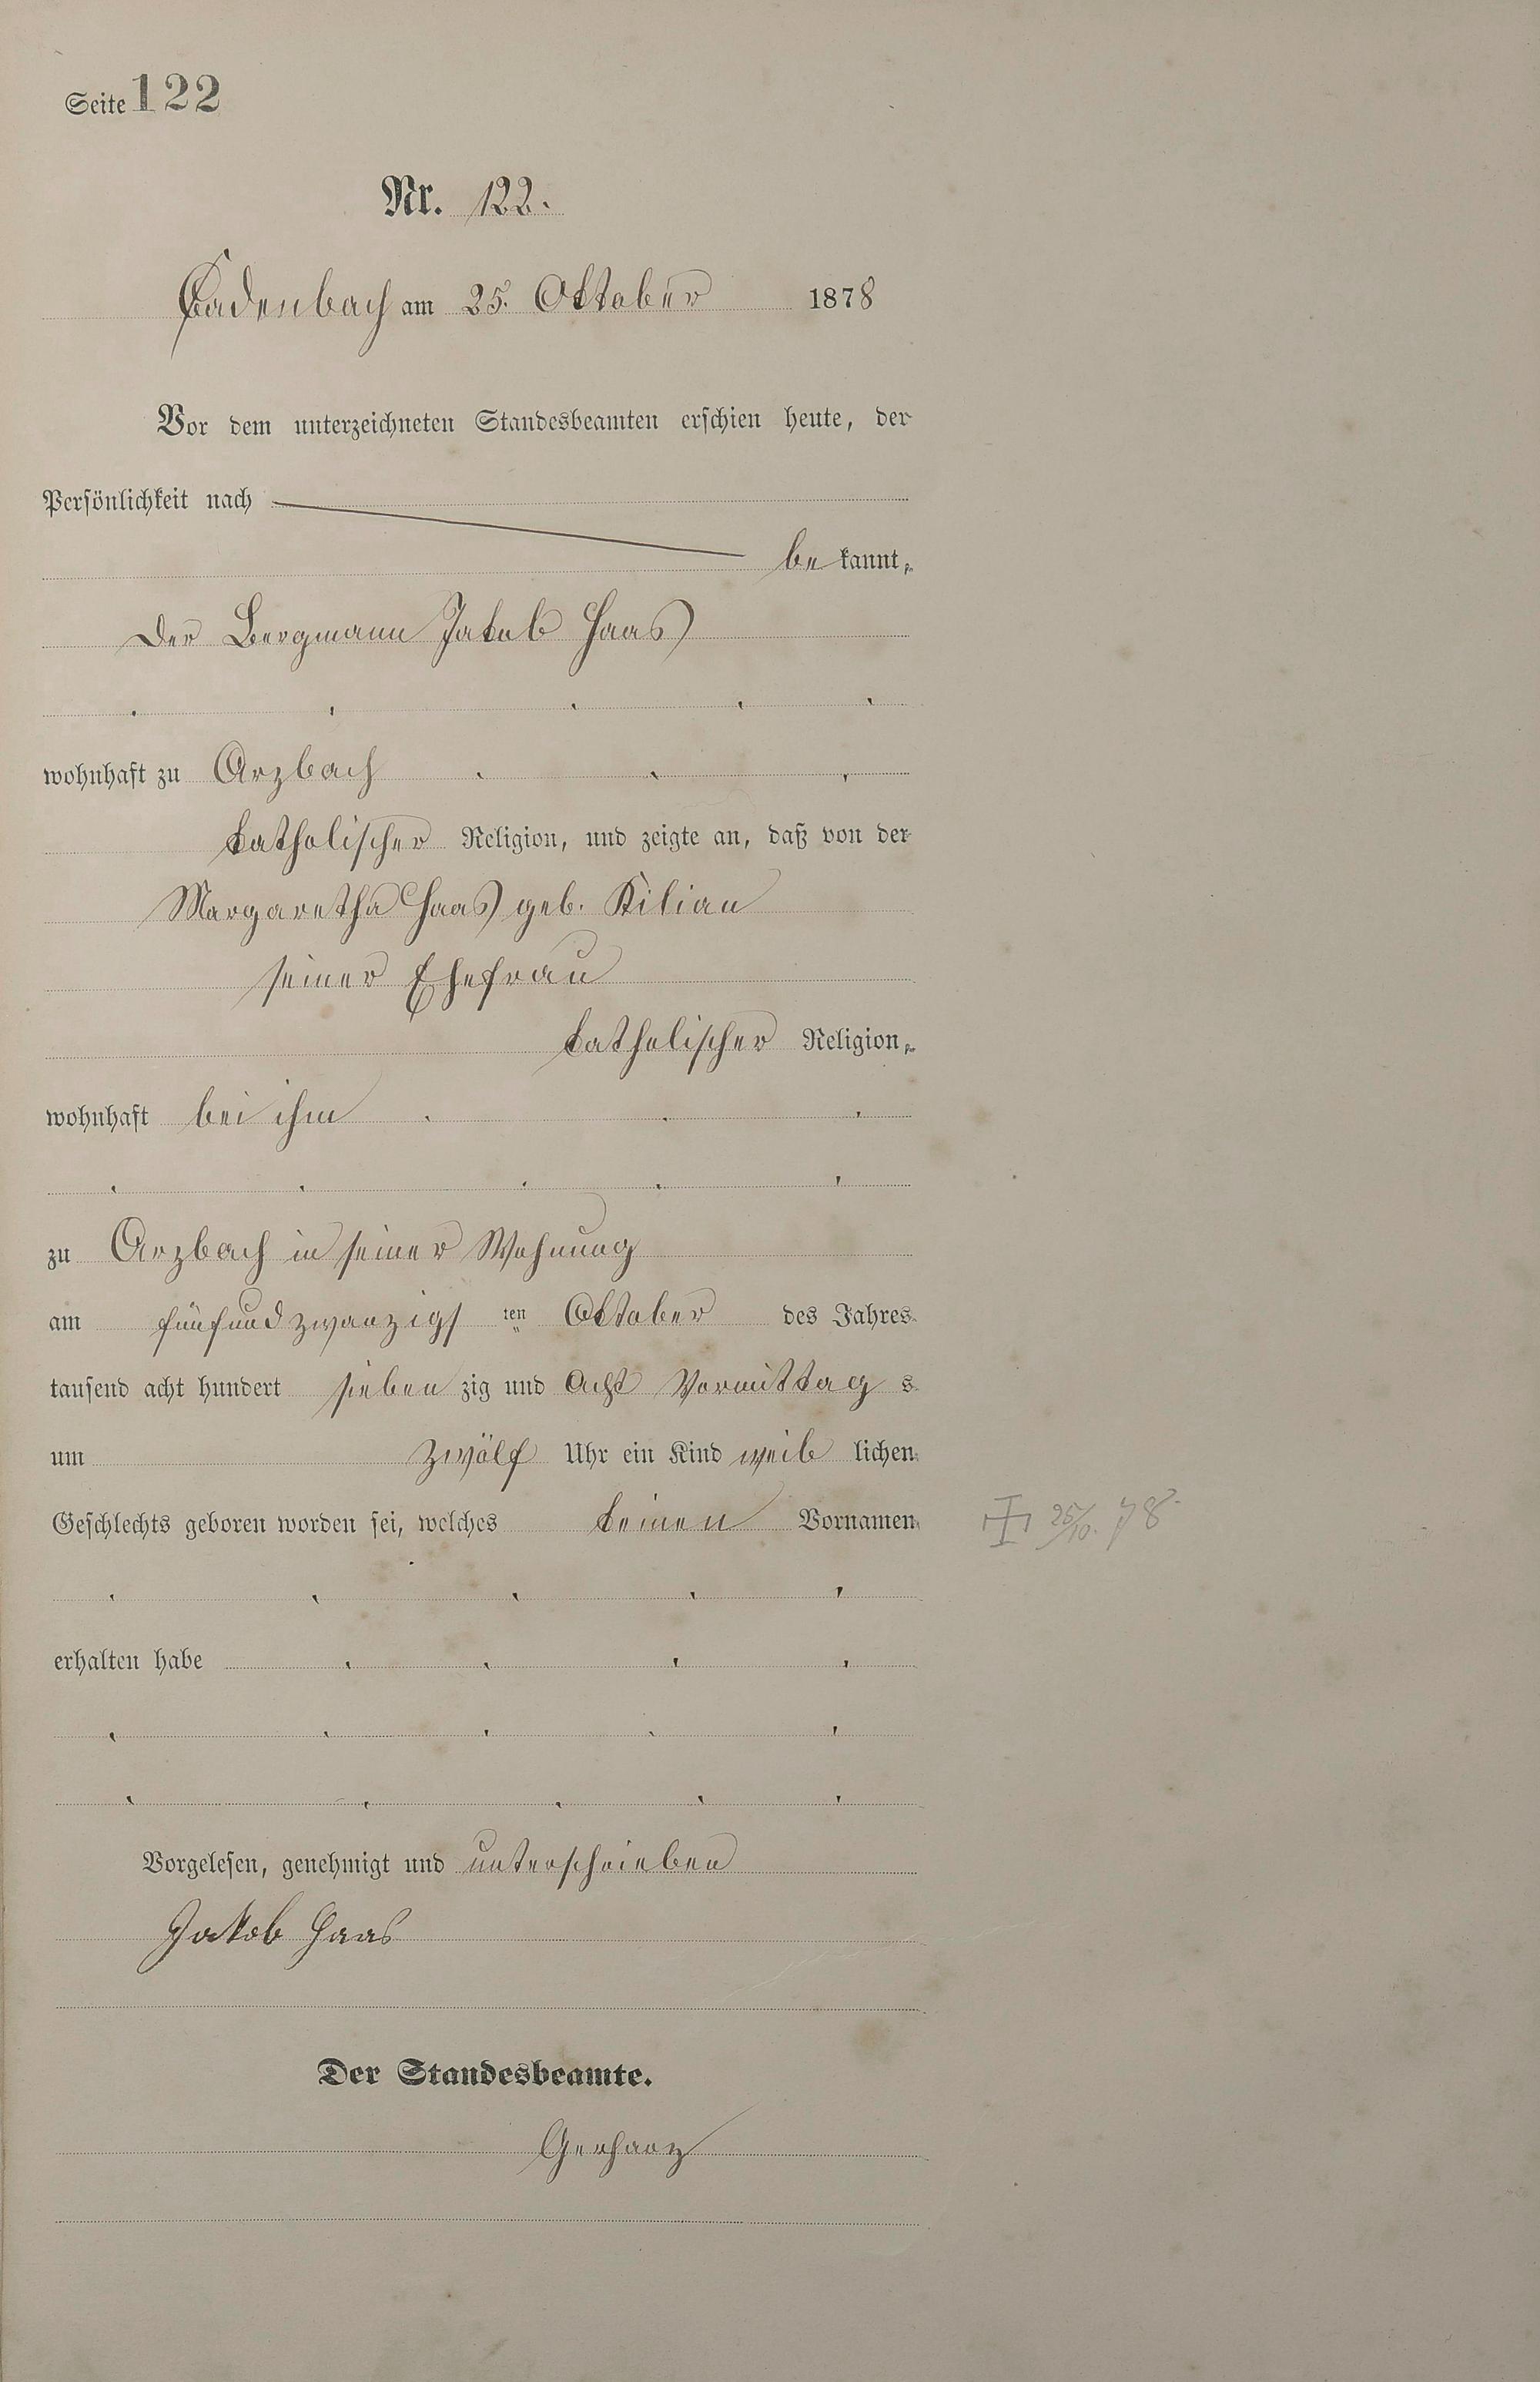 Seite 122
Nr. 122.
Cadenbach am 25. Oktober 1878
Vor dem unterzeichneten Standesbeamten erschien heute, der
Persönlichkeit nach
be kannt,
Der Bergmann Jakob Haas
wohnhaft zu Arzbach
katholischer Religion, und zeigte an, daß von der
Margaretha Haas geb. Kilian
seiner Ehefrau
katholischer Religion,
wohnhaft bei ihm
zu Arzbach in seiner Wohnung
am fünfundzwanzigs ten Oktober des Jahres
tausend acht hundert sieben zig und acht Vormittag s
um zwölf Uhr ein Kind weib lichen
Geschlechts geboren worden sei, welches keinen Vornamen
† 25/10. 78
erhalten habe
Vorgelesen, genehmigt und unterschrieben
Jakob Haas
Der Standesbeamte.
Gerharz